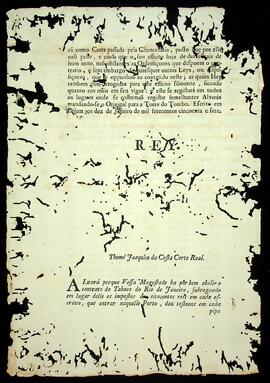 rá como Carta passada pela Chancellaria, posto que por ella
não passe, e ainda que o seu effeito haja de durar mais de
hum anno, sem embargo das Ordenaçoens que dispoem o con-
trario, e sem embargo de quaesquer outras Leys, ou Dispo-
siçoens, que se opponhaõ ao conteúdo neste, as quaes hey
tambem por derogadas para este effeito sómente, ficando
quanto ao mais em seu vigor: e este se registará em todos
os lugares onde se costumaõ registar semelhantes Alvarás
mandando-se o Original para a Torre do Tombo. Escrito em
Belem aos dez de Janeiro de mil setecentos cincoenta e sete.
REY
Thomé Joaquim da Costa Corte Real.
ALvará porque Vossa Magestade ha por bem abolir o
contrato do Tabaco do Rio de Janeiro, subrogando
em lugar delle os impostos de oitocentos reis em cada es-
cravo, que entrar naquelle Porto, dez tostoens em cada
pipa